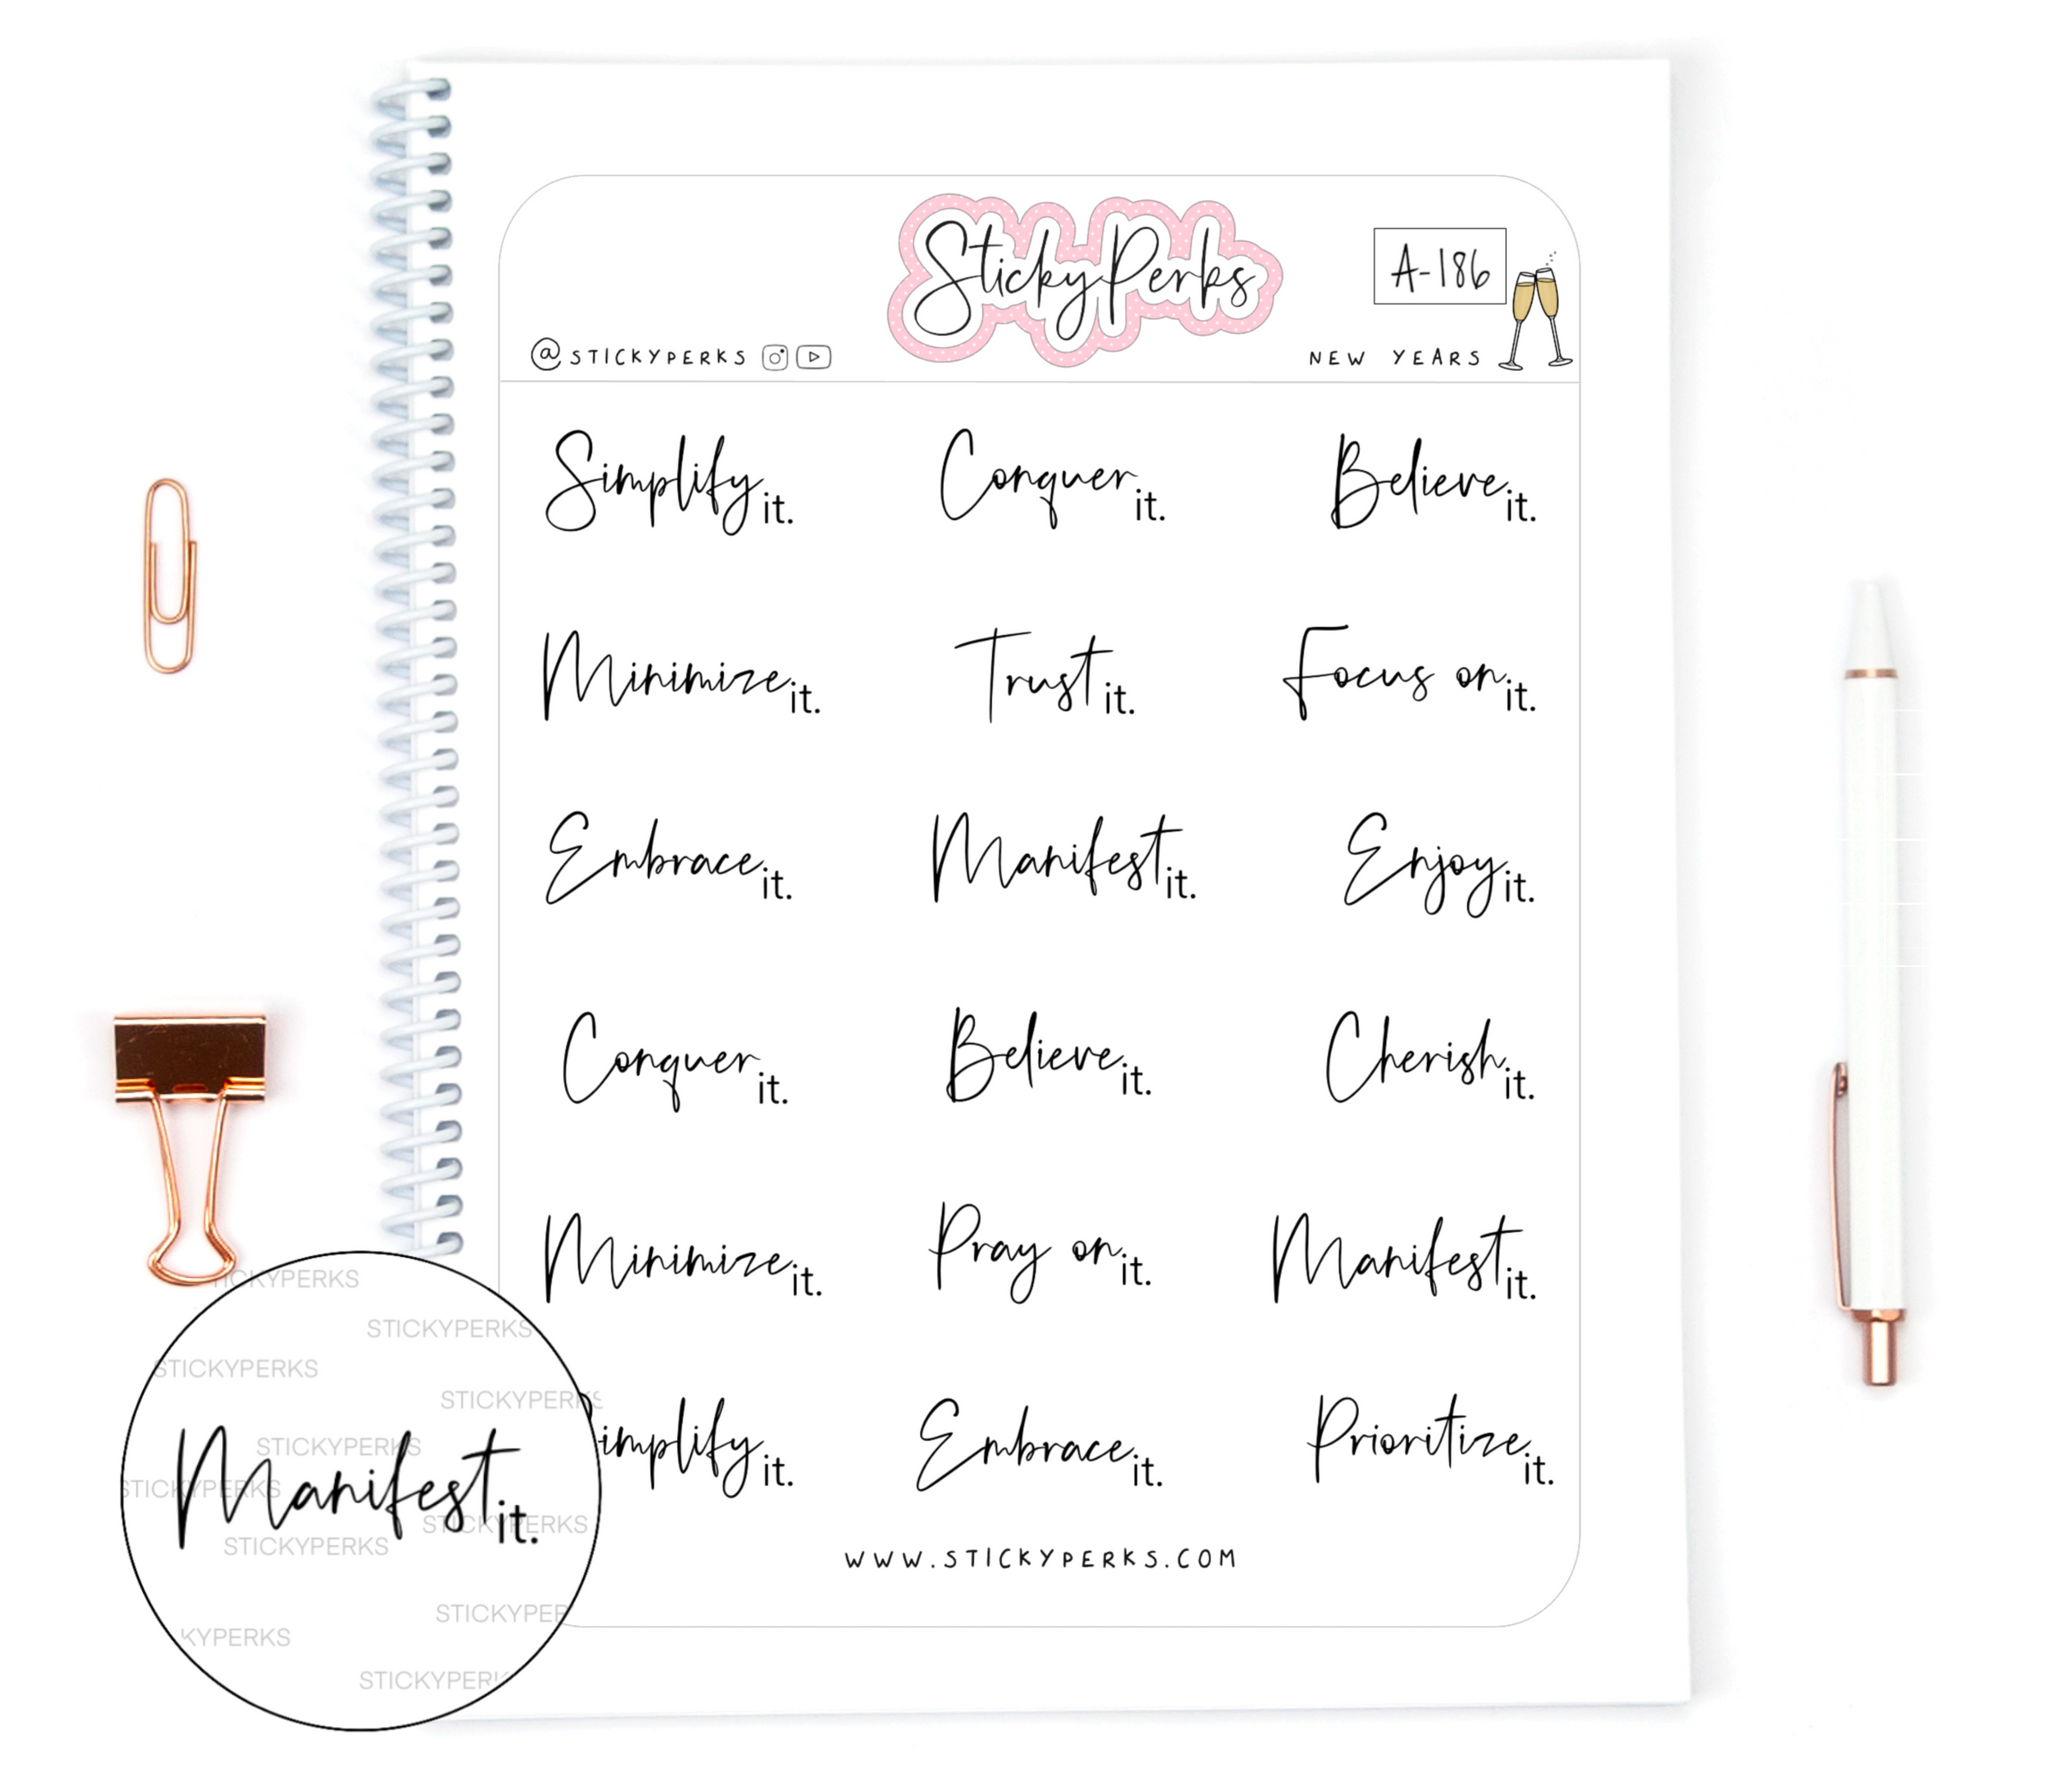 StickyPerks
A-186
@STICKYPERKS
NEW YEARS
Simplify it. Conquer it. Believe it.
Minimize it. Trust it. Focus on it.
Embrace it. Manifest it. Enjoy it.
Conquer it. Believe it. Cherish it.
Minimize it. Pray on it. Manifest it.
Simplify it. Embrace it. Prioritize it.
WWW.STICKYPERKS.COM
ICKYPERKS
STICKYPERKS
STICKYPERKS
STICKYPERKS
STICKYPERKS
STICKYPERKS
Manifest it.
STICKYPERKS
STICKYPERKS
STICKYPER
KYPERKS
STICKYPERK